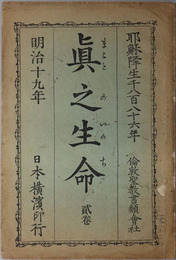 耶穌降生千八百八十六年
倫敦聖教書類會社
眞之生命
まこと の いのち
貳卷
明治十九年
日本橫濱印行